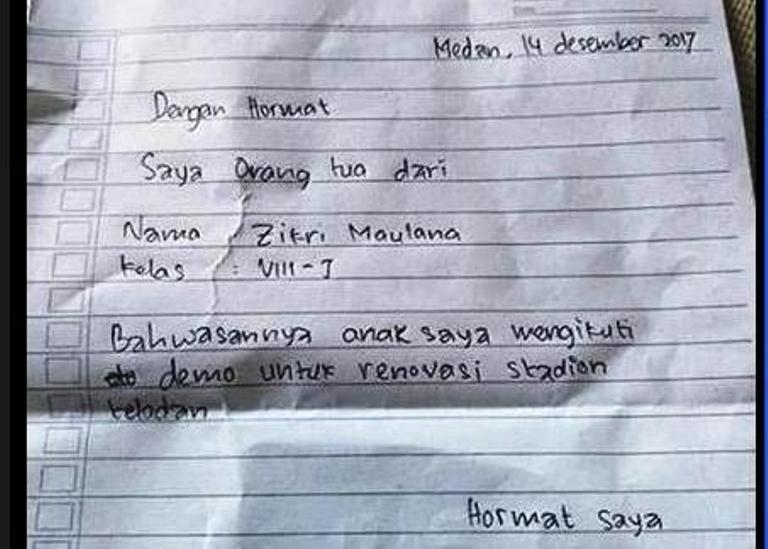 Medan, 14 desember 2017
Dengan Hormat
Saya Orang tua dari
Nama : Zikri Maulana
Kelas : VIII - I
Bahwasannya anak saya mengikuti
demo untuk renovasi stadion
teladan
Hormat saya